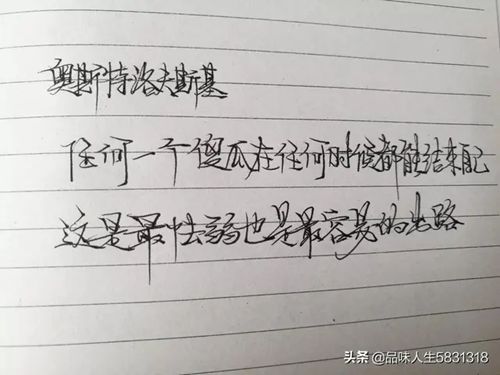 奥斯特洛夫斯基
任何一个傻瓜在任何时候都能结束
这是最怯弱也是最容易的出路
头条 @品味人生5831318